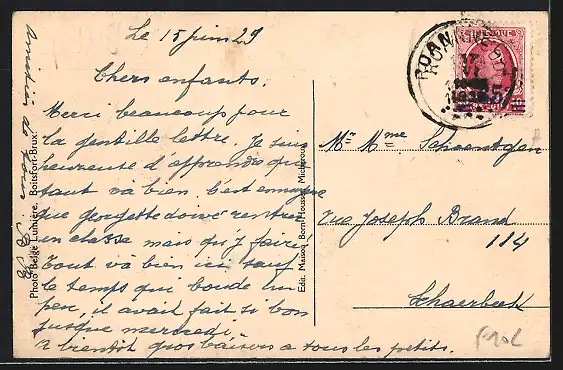 Le 15 juin 29
Chers enfants.
Merci beaucoup pour
la gentille lettre. Je suis
heureuse d'apprendre que
tout va bien. c'est ennuyeux
que georgette doive rentrer
en classe mais qu'y faire!
Tout va bien ici sauf
le temps qui boude un
peu, il avait fait si bon
jusque mercredi.
a bientôt gros baisers a tous les petits.
Amitiés de tous
Photo Belge Lumière, Boitsfort-Brux.
Edit. Maison Born-Housset, Micheroux
ROANNE
Mr Mme Schoentgen
rue Joseph Brand
114
Schaerbeek